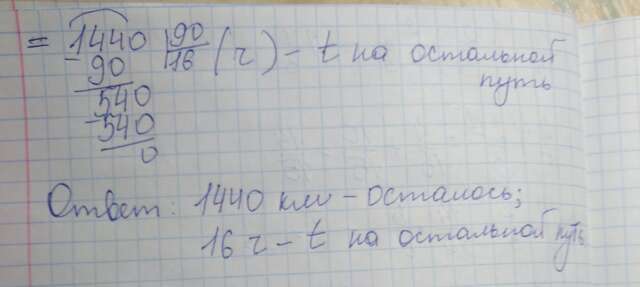 = 1440 | 90
- 90 | 16 (ч) - t на остальной
путь
540
- 540
0
Ответ: 1440 км - осталось;
16 ч - t на остальной путь